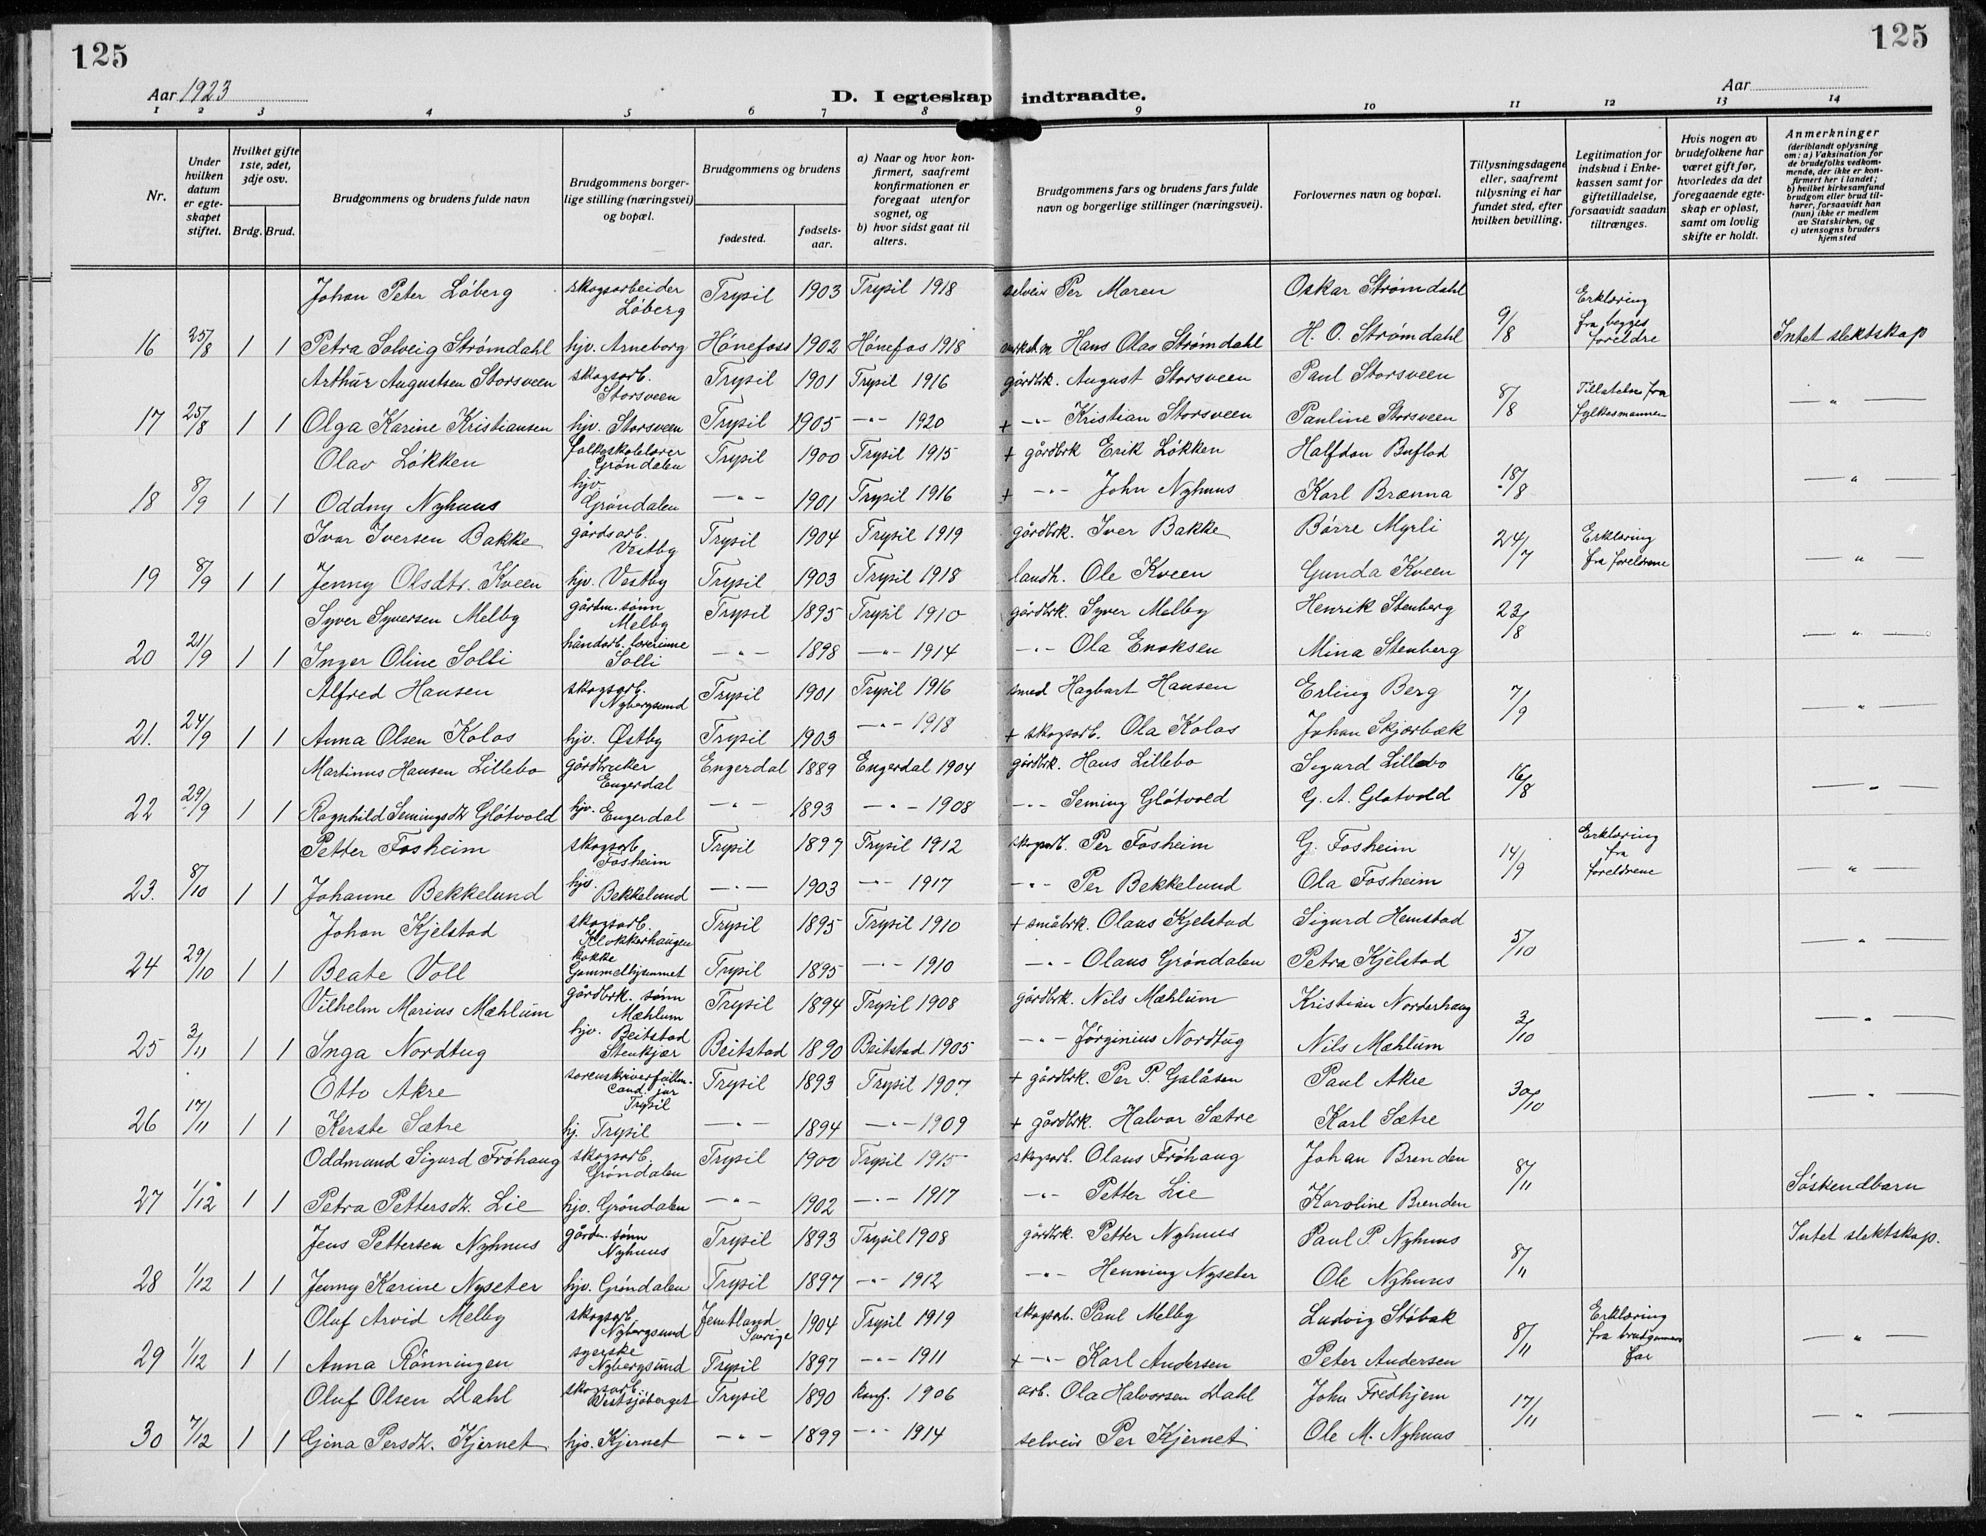 125
125
Aar 1923
D. I egteskap indtraadte.
Aar
1 2 3 4 5 6 7 8 9 10 11 12 13 14
Nr.
Under hvilken datum er egteskapet stiftet.
Hvilket gifte 1ste, 2det, 3dje osv.
Brdg. Brud.
Brudgommens og brudens fulde navn
Brudgommens borgerlige stilling (næringsvei) og bopæl.
Brudgommens og brudens
fødested.
fødselsaar.
a) Naar og hvor konfirmert, saafremt konfirmationen er foregaat utenfor sognet, og
b) hvor sidst gaat til alters.
Brudgommens fars og brudens fars fulde navn og borgerlige stillinger (næringsvei).
Forlovernes navn og bopæl.
Tillysningsdagene eller, saafremt tillysning ei har fundet sted, efter hvilken bevilling.
Legitimation for indskud i Enkekassen samt for giftetilladelse, forsaavidt saadan tiltrænges.
Hvis nogen av brudefolkene har været gift før, hvorledes da det foregaaende egteskap er opløst, samt om lovlig skifte er holdt.
Anmerkninger (deriblandt oplysning om: a) Vaksination for de brudefolks vedkommende, der ikke er konfirmert her i landet; b) hvilket kirkesamfund brudgom eller brud tilhører, forsaavidt han (hun) ikke er medlem av Statskirken, og c) utensogns bruders hjemsted
Johan Peter Löberg skogsarbeider Löberg Trysil 1903 Trysil 1918 selveier Per Moren Oskar Strømdahl
16 25/8 1 1 Petra Solveig Strømdahl hjv. Arneborg Hönefoss 1902 Hönefos 1918 Hans Olav Strømdahl H. O. Strømdahl 9/8 Erklæring fra begges foreldre Intet slektskap
Arthur Augustsen Storsveen skogsarb. Storsveen Trysil 1901 Trysil 1916 gårdbrk. August Storsveen Paul Storsveen
17 25/8 1 1 Olga Karine Kristiansen hjv. Storsveen Trysil 1905 -"- 1920 + -"- Kristian Storsveen Pauline Storsveen 8/8 Tillatelse fra fylkesmannen -"-
Olav Lökken folkeskolelærer Gröndalen Trysil 1900 Trysil 1915 + gårdbrk Erik Lökken Halfdan Buflod
18 8/9 1 1 Oddny Nyhuus hjv Gröndalen -"- 1901 Trysil 1916 + -"- John Nyhuus Karl Brænna 18/8 -"-
Ivar Iversen Bakke gårdsarb. Vestby Trysil 1904 Trysil 1919 gårdbrk. Iver Bakke Börre Myrli
19 8/9 1 1 Jenny Olsdtr. Kveen hjv. Vestby Trysil 1903 Trysil 1918 landh. Ole Kveen Gunda Kveen 24/7 Erklæring fra foreldrene -"-
Syver Syversen Melby gårdm. sønn Melby Trysil 1895 Trysil 1910 gårdbrk. Syver Melby Henrik Stenberg
20 21/9 1 1 Inger Oline Solli håndarb. lærerinne Solli -"- 1898 -"- 1914 -"- Ola Enoksen Mina Stenberg 23/8 -"-
Alfred Hansen skogsarb. Nybergsund Trysil 1901 Trysil 1916 smed Hagbart Hansen Erling Berg
21. 24/9 1 1 Anna Olsen Kolos hjv. Østby Trysil 1903 -"- 1918 + skogsarb. Ola Kolos Johan Skjærbæk 7/9 -"-
Martinus Hansen Lillebo gårdbruker Engerdal Engerdal 1889 Engerdal 1904 gårdbrk. Hans Lillebo Sigurd Lillebo
22 29/9 1 1 Ragnhild Semingsdt. Glötvold hjv. Engerdal -"- 1893 -"- 1908 -"- Seming Glötvold G. A. Glotvold 16/8 -"-
Petter Fosheim skogsarb. Fosheim Trysil 1897 Trysil 1912 skogsarb. Per Fosheim G. Fosheim
23. 8/10 1 1 Johanne Bekkelund hjv. Bekkelund -"- 1903 -"- 1917 -"- Per Bekkelund Ola Fosheim 14/9 Erklæring fra foreldrene -"-
Johan Kjelstad skogsarb. Klokkerhaugen Trysil 1895 Trysil 1910 + småbrk. Olaus Kjelstad Sigurd Hemstad
24 29/10 1 1 Beate Voll kokke Gammelhjemmet Trysil 1895 -"- 1910 -"- Olaus Gröndalen Petra Kjelstad 5/10 -"-
Vilhelm Marius Mæhlum gårdbrk. sønn Mæhlum Trysil 1894 Trysil 1908 gårdbrk. Nils Mæhlum Kristian Norderhaug
25 3/11 1 1 Inga Nordtug hjv. Beitstad Stenkjær Beitstad 1890 Beitstad 1905 -"- Jörginius Nordtug Nils Mæhlum 2/10 -"-
Otto Akre sorenskriverfullm. Cand. jur Trysil Trysil 1893 Trysil 1907 + gårdbrk. Per P. Galåsen Paul Akre
26 17/11 1 1 Kerste Sætre hj. Trysil -"- 1894 -"- 1909 + gårdbrk. Halvor Sætre Karl Sætre 30/10 -"-
Oddmund Sigurd Fröhaug skogsarb. Gröndalen Trysil 1900 Trysil 1915 skogsarb. Olaus Fröhaug Johan Brenden
27 1/12 1 1 Petra Pettersdt. Lie hjv. Gröndalen -"- 1902 -"- 1917 -"- Petter Lie Karoline Brenden 8/11 Söskendbarn
Jens Pettersen Nyhuus gårdm. sønn Nyhuus Trysil 1893 Trysil 1908 gårdbrk. Petter Nyhuus Paul P. Nyhuus Intet slektskap.
28 1/12 1 1 Jenny Karine Nyseter hjv. Gröndalen Trysil 1897 -"- 1912 -"- Henning Nyseter Ole Nyhuus 8/11
Oluf Arvid Melby skogsarb Nybergsund Jemtland Sverige 1904 Trysil 1919 skogsarb. Paul Melby Ludvig Stöbak
29 1/12 1 1 Anna Rönningen syerske Nybergsund Trysil 1897 -"- 1911 + -"- Karl Andersen Peter Andersen 8/11 Erklæring fra brudgommens far -"-
Oluf Olsen Dahl skogsarb. Vestsjöberget Trysil 1890 konf. 1906 arb. Ola Halvorsen Dahl John Fredhjem
30 7/12 1 1 Gina Persdt. Kjernet hjv. Kjernet -"- 1899 -"- 1914 selveier Per Kjernet Ole M. Nyhuus 17/11 -"-